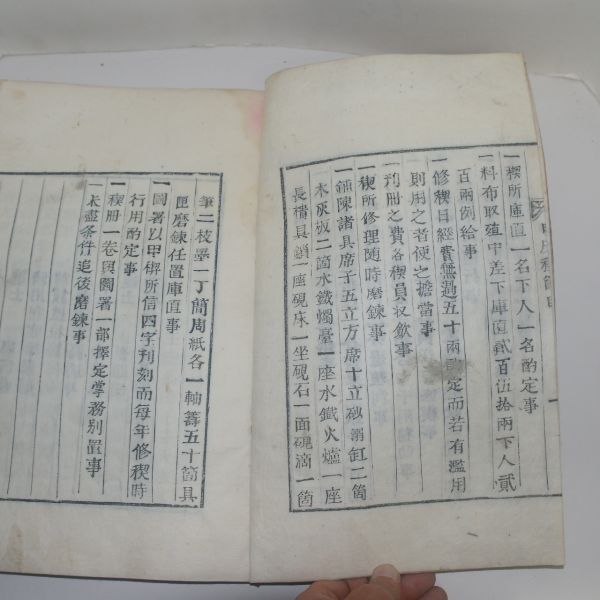 一稧所庫直一名下人一名酌定事
一料布取殖中差下庫直貳百伍拾兩下人貳
百兩例給事
一修稧日經費無過五十兩酌定而若有濫用
則用之者使之擔當事
一刊冊之費各稧員收斂事
一稧所修理随時磨鍊事
一鋪陳諸具席子五立方席十立砂溺缸二箇
木灰板二箇水鐵燭臺一座水鐵火爐一座
長樻具鎖一座硯床一坐硯石一面硯滴一箇
筆二枝墨一丁簡周紙各一軸籌五十箇具
匣磨鍊任置庫直事
一圖署以甲稧所信四字刋刻而每年修稧時
行用酌定事
一稧冊一卷與圖署一部擇定掌務別置事
一未盡条件追後磨鍊事